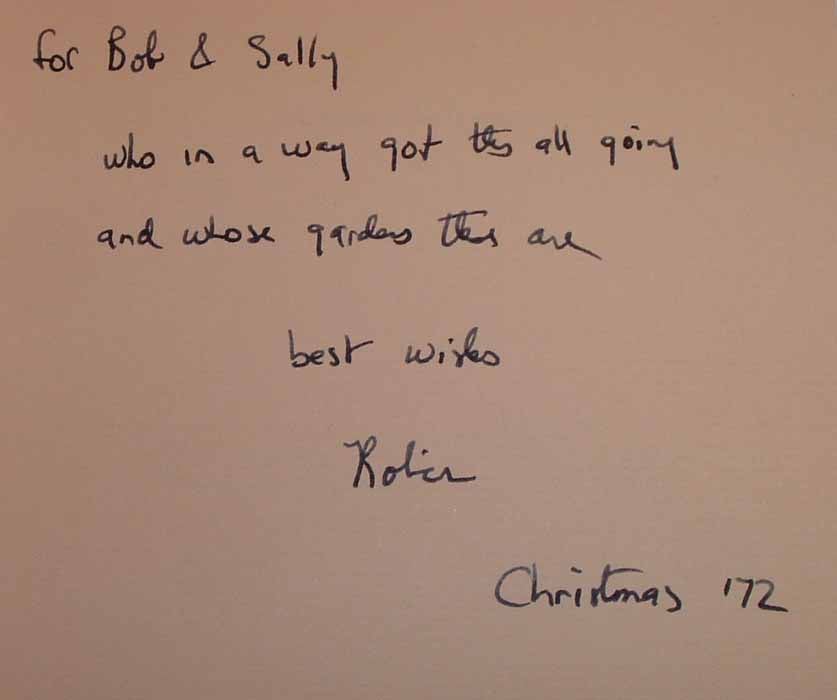 for Bob & Sally
who in a way got this all going
and whose gardens these are
best wishes
Robin
Christmas '72